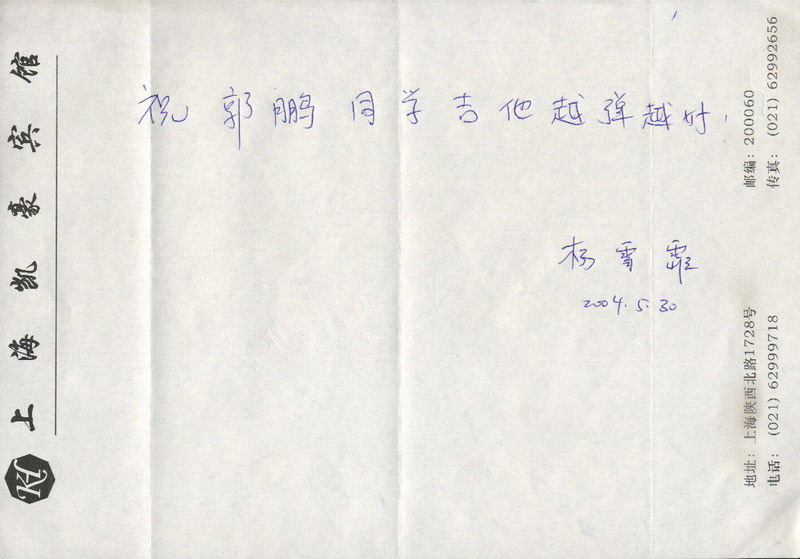 祝郭鹏同学吉他越弹越好.
杨雪霏
2004.5.30
上海凯豪宾馆
KH
地址: 上海陕西北路1728号 邮编: 200060
电话: (021) 62999718 传真: (021) 62992656